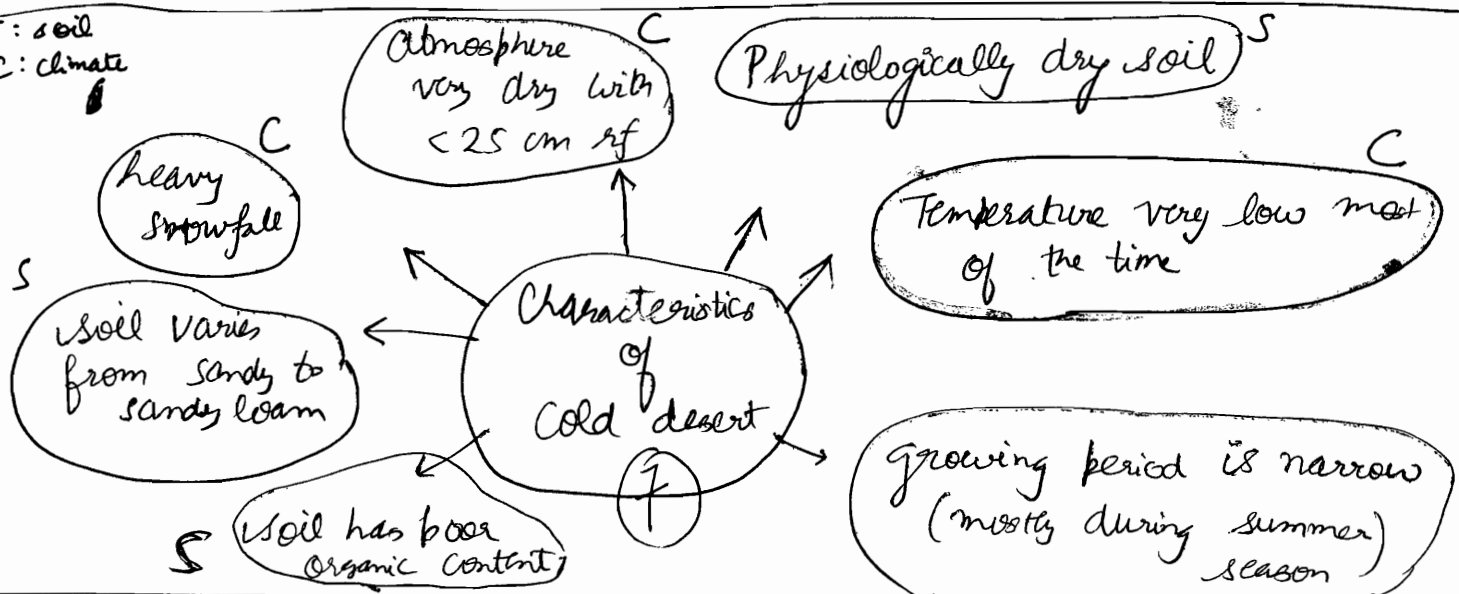 : soil
C: climate
Atmosphere
very dry with
<25 cm rf
C
Physiologically dry soil
S
heavy
snowfall
C
Temperature very low most
of the time
C
S
soil varies
from sandy to
sandy loam
Characteristics
of
Cold desert
7
growing period is narrow
(mostly during summer)
season
S
soil has poor
organic content